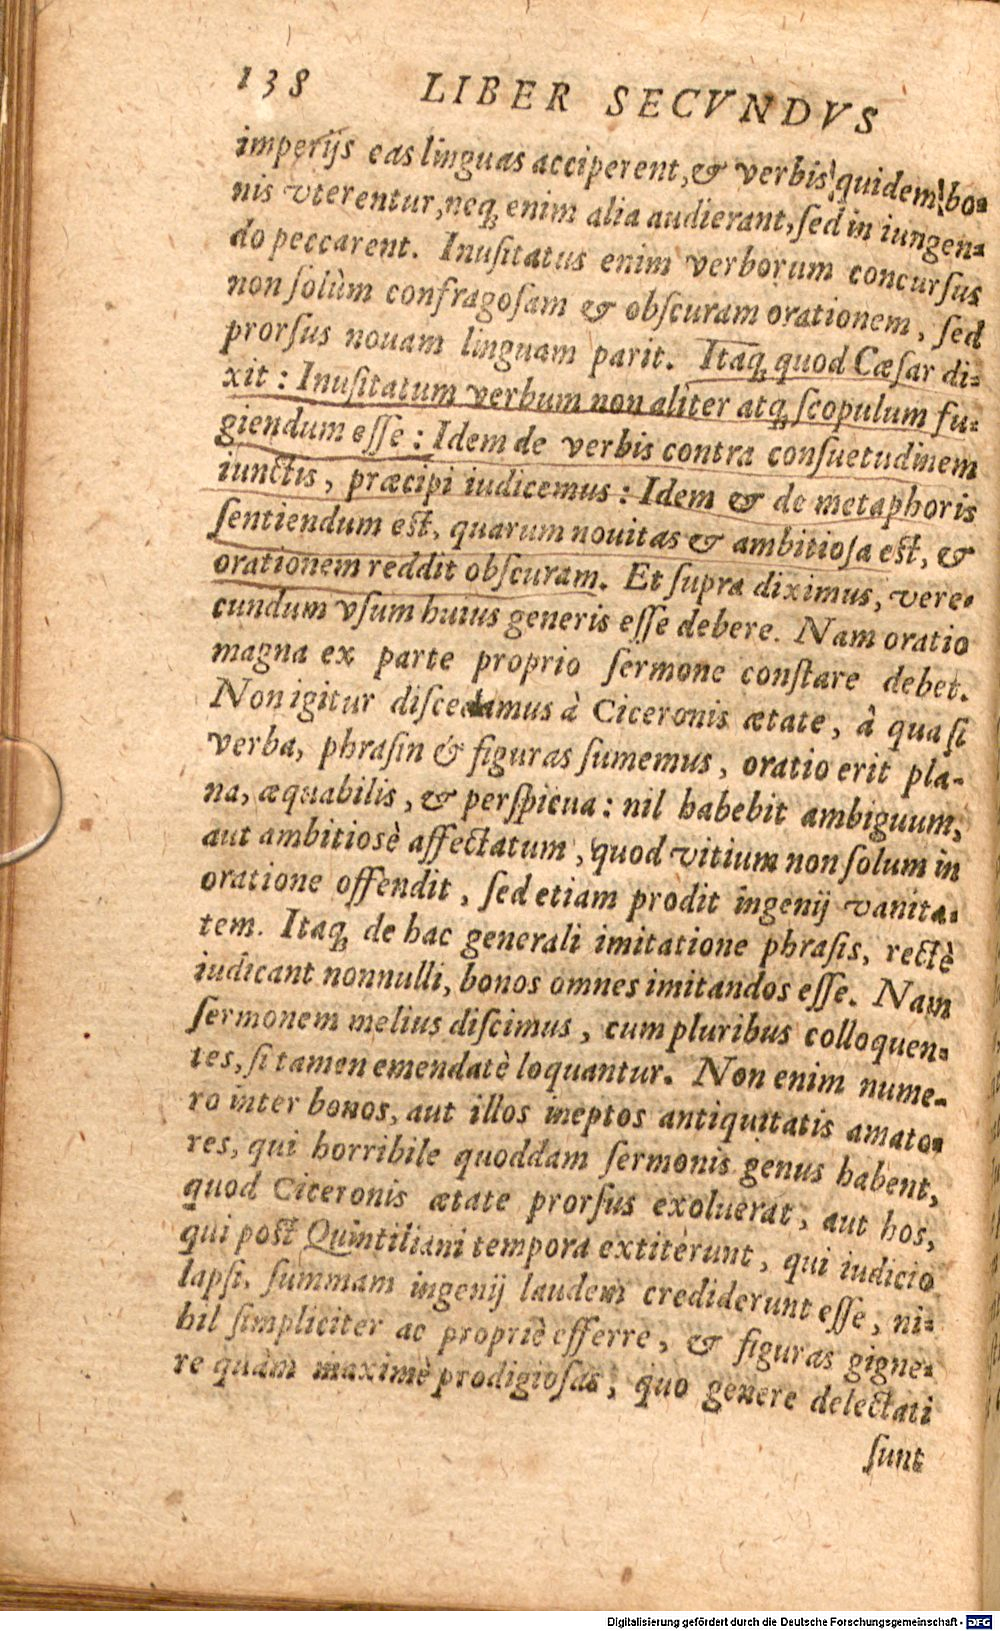 138 LIBER SECVNDVS
imperijs eas linguas acciperent, & verbis quidem bo-
nis vterentur, neq; enim alia audierant, sed in iungen-
do peccarent. Inusitatus enim verborum concursus
non solùm confragosam & obscuram orationem, sed
prorsus nouam linguam parit. Itaq; quod Cæsar di-
xit: Inusitatum verbum non aliter atq; scopulum fu-
giendum esse: Idem de verbis contra consuetudinem
iunctis, præcipi iudicemus: Idem & de metaphoris
sentiendum est, quarum nouitas & ambitiosa est, &
orationem reddit obscuram. Et supra diximus, vere-
cundum vsum huius generis esse debere. Nam oratio
magna ex parte proprio sermone constare debet.
Non igitur discedamus à Ciceronis ætate, â qua si
verba, phrasin & figuras sumemus, oratio erit pla-
na, æquabilis, & perspicua: nil habebit ambiguum,
aut ambitiosè affectatum, quod vitium non solum in
oratione offendit, sed etiam prodit ingenij vanita-
tem. Itaq; de hac generali imitatione phrasis, rectè
iudicant nonnulli, bonos omnes imitandos esse. Nam
sermonem melius discimus, cum pluribus colloquen-
tes, si tamen emendatè loquantur. Non enim nume-
ro inter bonos, aut illos ineptos antiquitatis amato-
res, qui horribile quoddam sermonis genus habent,
quod Ciceronis ætate prorsus exoluerat, aut hos,
qui post Quintiliani tempora extiterunt, qui iudicio
lapsi, summam ingenij laudem crediderunt esse, ni-
hil simpliciter ac propriè efferre, & figuras gigne-
re quàm maximè prodigiosas, quo genere delectati
sunt
Digitalisierung gefördert durch die Deutsche Forschungsgemeinschaft - DFG